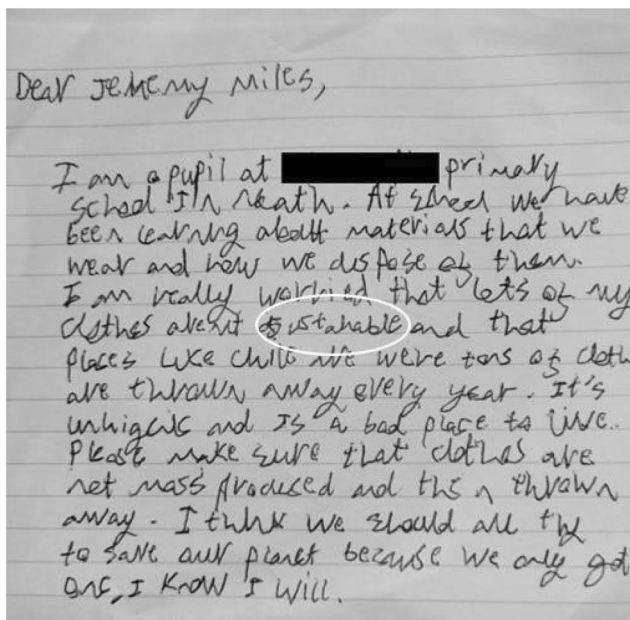 Dear Jeremy Miles,
I am a pupil at primary
school In neath. At school we have
been learning about materials that we
wear and how we dispose of them.
I am really worried that lots of my
clothes arent sustanable and that
places like chile are were tons of cloth
are thrown away every year. It's
unhigenic and Is a bad place to live.
Please make sure that clothes are
not mass prodused and then thrown
away. I think we should all try
to save our planet because we only got
one, I know I will.